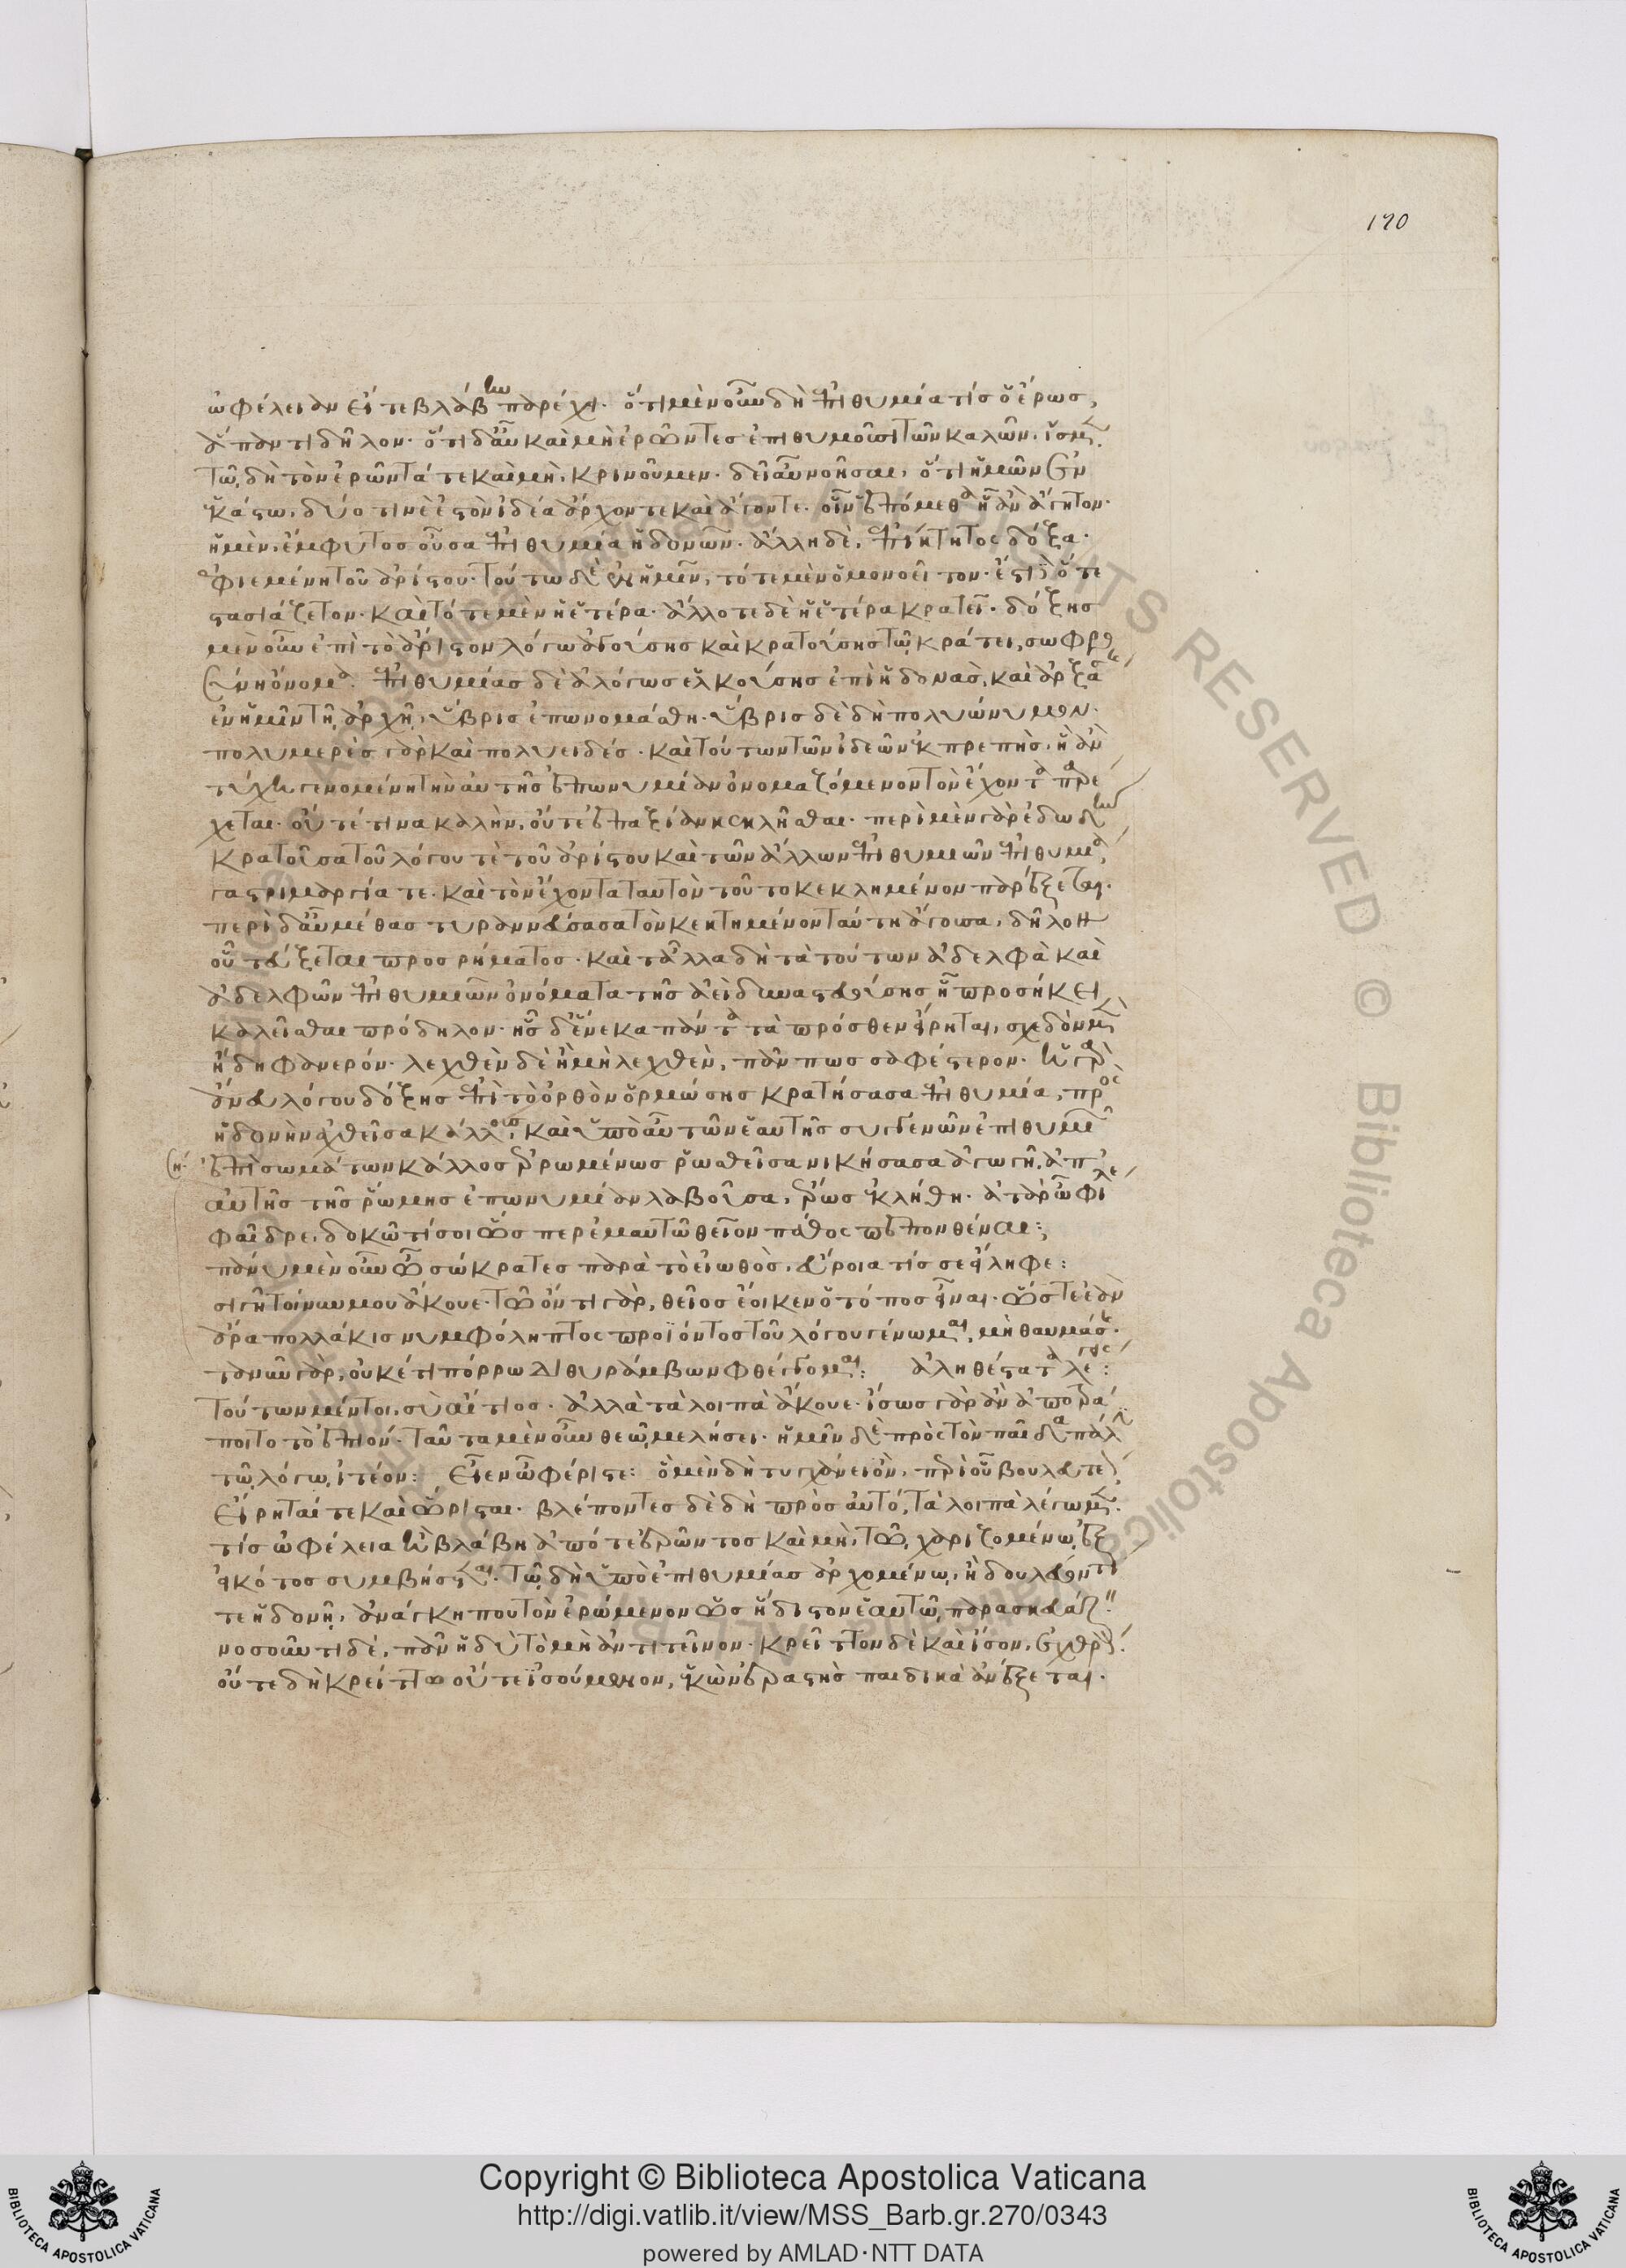 190
ὠφέλειαν εἴτε βλάβην παρέχει. ὅτι μὲν οὖν δὴ ἐπιθυμία τίς ὁ ἔρως,
ἅπαντι δῆλον. ὅτι δ' αὖ καὶ μὴ ἐρῶντες ἐπιθυμοῦσι τῶν καλῶν, ἴσμεν.
τῶ δὴ τὸν ἐρῶντά τε καὶ μὴ, κρινοῦμεν. δεῖ αὖ νοῆσαι, ὅτι ἡμῶν ἐν
ἑκάστω, δύο τινέ ἐστον ἰδέα ἄρχοντε καὶ ἄγοντε. οἷν ἑπόμεθα ἧ ἂν ἄγητον.
ἡ μὲν, ἔμφυτος οὖσα ἐπιθυμία ἡδονῶν. ἄλλη δὲ, ἐπίκτητος δόξα.
ἐφιεμένη τοῦ ἀρίστου. τούτω δὲ ἐν ἡμῖν, τότε μὲν ὁμονοεῖτον. ἔστι δ' ὅτε
στασιάζετον. καὶ τότε μὲν ἡ ἑτέρα. ἄλλοτε δὲ ἡ ἑτέρα κρατεῖ. δόξης
μὲν οὖν ἐπὶ τὸ ἄριστον λόγω ἀγούσης καὶ κρατούσης τῶ κράτει, σωφρο
σύνη ὄνομα. ἐπιθυμίας δὲ ἀλόγως ἑλκούσης ἐπὶ ἡδονὰς, καὶ ἀρξάσης
ἐν ἡμῖν τῆ ἀρχῆ, ὕβρις ἐπωνομάσθη. ὕβρις δὲ δὴ πολυώνυμον.
πολυμερὲς γὰρ καὶ πολυειδές. καὶ τούτων τῶν ἰδεῶν ἐκπρεπὴς, ἣ ἂν
τύχη γενομένη τὴν αὑτῆς ἐπωνυμίαν ὀνομαζόμενον τὸν ἔχοντα παρέ
χεται. οὔτέ τινα καλὴν, οὔτε ἐπαξίαν κεκλῆσθαι. περὶ μὲν γὰρ ἐδωδὴν
κρατοῦσα τοῦ λόγου τὲ τοῦ ἀρίστου καὶ τῶν ἄλλων ἐπιθυμιῶν ἐπιθυμία,
γαστριμαργία τε. καὶ τὸν ἔχοντα ταυτὸν τοῦτο κεκλημένον παρέξεται.
περὶ δ' αὖ μέθας τυραννεύσασα τὸν κεκτημένον ταύτη ἄγουσα, δῆλον
οὗ τεύξεται προσρήματος. καὶ τἄλλα δὴ τὰ τούτων ἀδελφὰ καὶ
ἀδελφῶν ἐπιθυμιῶν ὀνόματα τῆς ἀεὶ δυναστευούσης ἧ προσήκει
καλεῖσθαι πρόδηλον. ἧς δ' ἕνεκα πάντα τὰ πρόσθεν εἴρηται, σχεδὸν μὲν
ἤδη φανερόν. λεχθὲν δὲ ἢ μὴ λεχθὲν, πάντως σαφέστερον. ἡ γὰρ
ἄνευ λόγου δόξης ἐπὶ τὸ ὀρθὸν ὁρμώσης κρατήσασα ἐπιθυμία, πρὸς
ἡδονὴν ἀχθεῖσα κάλλους, καὶ ὑπὸ αὖ τῶν ἑαυτῆς συγγενῶν ἐπιθυμιῶν
ἐπὶ σωμάτων κάλλος ἐρρωμένως ῥωσθεῖσα νικήσασα ἀγωγῆ, ἀπ'
αὐτῆς τῆς ῥώμης ἐπωνυμίαν λαβοῦσα, ἔρως ἐκλήθη. ἀτὰρ ὦ φίλε
φαῖδρε, δοκῶ τί σοι ὥσπερ ἐμαυτῶ θεῖον πάθος πεπονθέναι:
πάνυ μὲν οὖν ὦ σώκρατες παρὰ τὸ εἰωθὸς, εὔροιά τίς σε εἴληφε:
σιγῆ τοίνυν μου ἄκουε. τῶ ὄντι γὰρ, θεῖος ἔοικεν ὁ τόπος εἶναι. ὥστε ἐὰν
ἄρα πολλάκις νυμφόληπτος προϊόντος τοῦ λόγου γένωμαι, μὴ θαυμάσης.
τανῦν γὰρ, οὐκέτι πόρρω διθυράμβων φθέγγομαι: ἀληθέστατα λέγεις:
τούτων μέντοι, σὺ αἴτιος. ἀλλὰ τὰ λοιπὰ ἄκουε. ἴσως γὰρ ἂν ἀποτρά
ποιτο τὸ ἐπιόν. ταῦτα μὲν οὖν θεῶ μελήσει. ἡμῖν δὲ πρὸς τὸν παῖδα πάλιν
τῶ λόγω ἰτέον: εἶεν ὦ φέριστε: ὃ μὲν δὴ τυγχάνει ὂν, περὶ οὗ βουλευτέον,
εἴρηταί τε καὶ ὥρισται. βλέποντες δὲ δὴ πρὸς αὐτό, τὰ λοιπὰ λέγωμεν.
τίς ὠφέλεια ἢ βλάβη ἀπό τε ἐρῶντος καὶ μὴ, τῶ χαριζομένω ἐξ
εἰκότος συμβήσεται. τῶ δὴ ὑπὸ ἐπιθυμίας ἀρχομένω, ἢ δουλεύοντί
τε ἡδονῆ, ἀνάγκη που τὸν ἐρώμενον ὡς ἥδιστον ἑαυτῶ παρασκευάζειν.
νοσοῦντι δὲ, πᾶν ἡδὺ τὸ μὴ ἀντιτεῖνον. κρεῖττον δὲ καὶ ἴσον, ἐχθρόν.
οὔτε δὴ κρείττω οὔτε ἰσούμενον, ἑκὼν ἐραστὴς παιδικὰ ἀνέξεται.
Copyright © Biblioteca Apostolica Vaticana
http://digi.vatlib.it/view/MSS_Barb.gr.270/0343
powered by AMLAD·NTT DATA